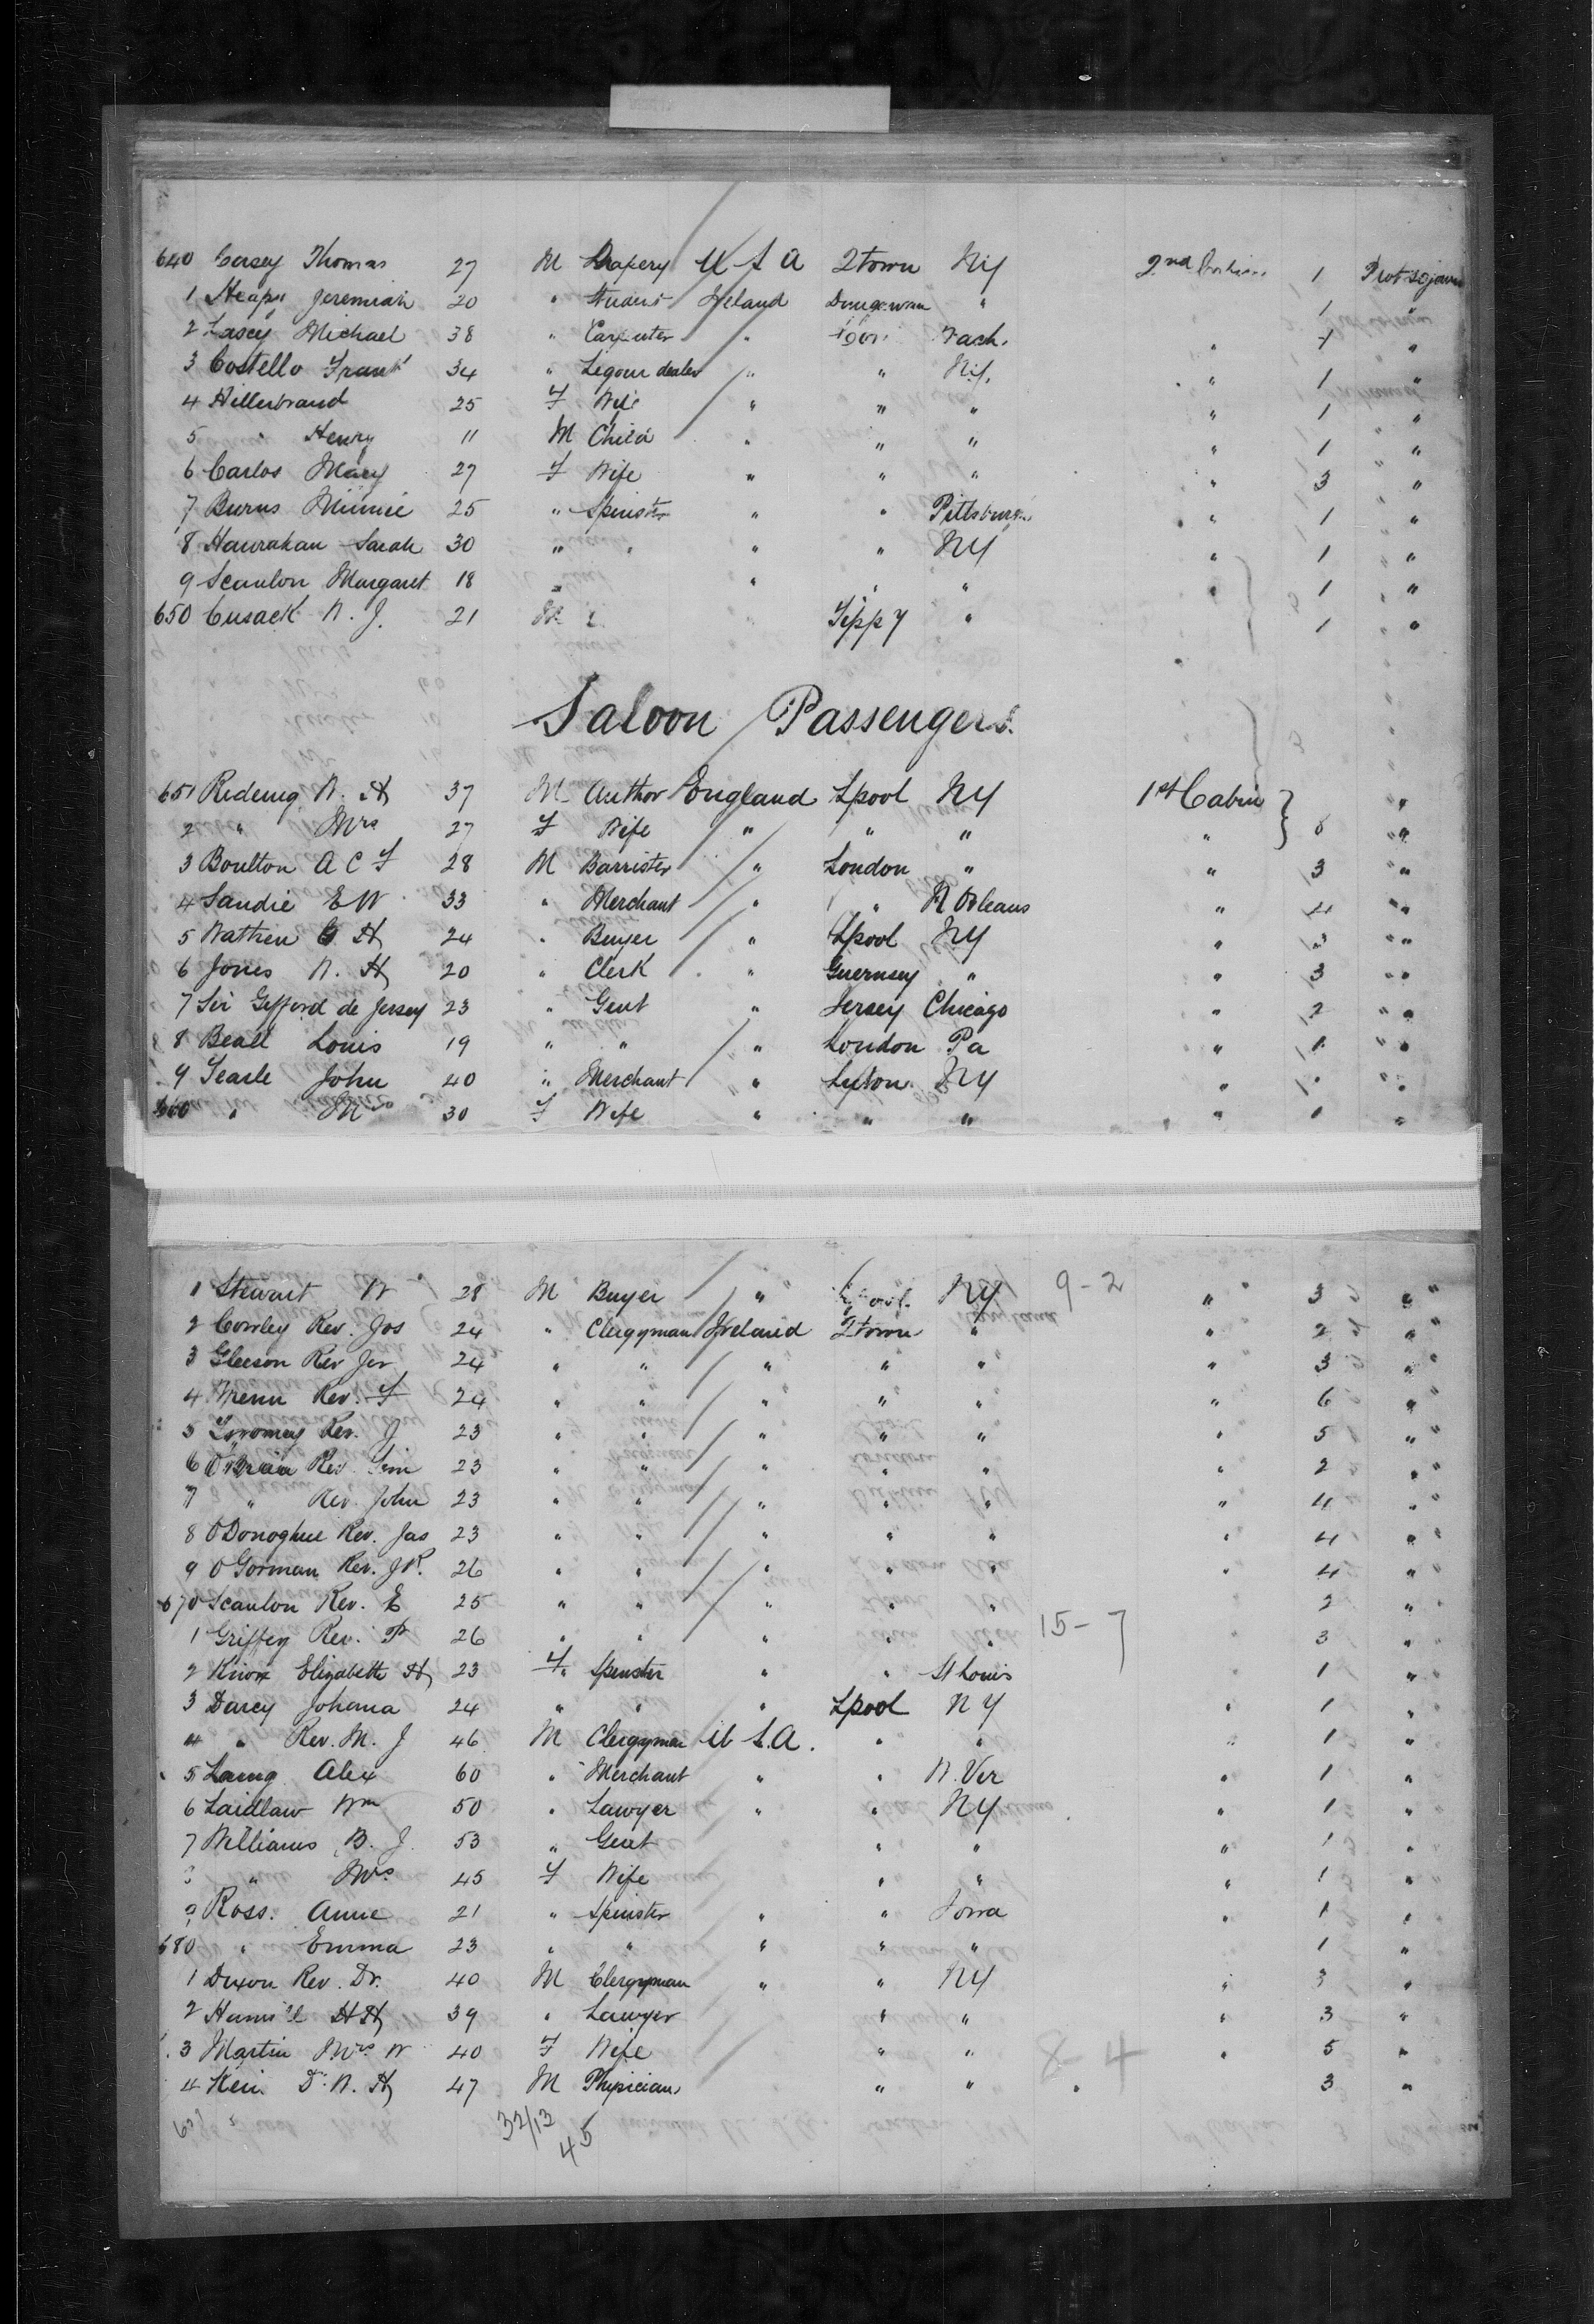 640 Casey Thomas 27 M Drapery U S A Qtown NY 2nd 1 Prot sojourn
1 Heapy Jeremiah 20 " Student Ireland Dungarvan " 1 "
2 Lasey Michael 38 " Carpenter " " 1 "
3 Costello Frank 34 " Liqour dealer " " NY. " 1 "
4 Hillerbrand 25 F Wife " " " " 1 "
5 " Henry 11 M Child " " " " 1 "
6 Carlos Mary 27 F Wife " " " " 3 "
7 Burns Minnie 25 " Spinster " " Pittsburg " 1 "
8 Hanrahan Sarah 30 " " " " NY " 1 "
9 Scanlon Margaret 18 " " " " " 1 "
650 Cusack W. J. 21 M Tippy " 1 "
Saloon Passengers.
651 Rideing W. H 37 M Author England Lpool NY 1st Cabin "
2 " Mrs 27 F Wife " " " " 8 "
3 Boulton A C F 28 M Barrister " London " " 3 "
4 Sandie E W 33 " Merchant " " N Orleans " 4 "
5 Wathen G. H 24 " Buyer " Lpool NY " 3 "
6 Jones W. H 20 " Clerk " Guernsey " " 3 "
7 Sir Gifford de Jersey 23 " Gent " Jersey Chicago " 2 "
8 Beall Louis 19 " " " London Pa " 1 "
9 Searle John 40 " Merchant " Luton NY " " "
660 " Mrs 30 F Wife " " " " 1 "
1 Stewart W 28 M Buyer " Lpool NY 9-2 " 3 "
2 Cowley Rev. Jos 24 " Clergyman Ireland Qtown " " 2 "
3 Gleeson Rev Jer 24 " " " " " " 3 "
4 Rev. F 24 " " " " " " 6 "
5 Twomey Rev. J 23 " " " " " " 5 "
6 O'Brien Rev. Tim 23 " " " " " " 2 "
7 " Rev. John 23 " " " " " " 4 "
8 O'Donoghue Rev. Jas 23 " " " " " " 4 "
9 O'Gorman Rev. J R. 26 " " " " " " 4 "
670 Scanlon Rev. E 25 " " " " " 2 "
1 Griffey Rev. P 26 " " " " " 15-7 " 3 "
2 Knox Elizabeth H 23 F Spinster " " St Louis 1 "
3 Darcy Johana 24 " " " Lpool N Y " 1 "
4 " Rev. M. J 46 M Clergyman U S.A. " " " 1 "
5 Laing Alex 60 " Merchant " " W. Ver " 1 "
6 Laidlaw Wm 50 " Lawyer " " NY " 1 "
7 Williams B. J. 53 " Gent " " " 1 "
8 " Mrs 45 F Wife " " " 1 "
9 Ross. Anne 21 " Spinster " " Iowa " 1 "
680 " Emma 23 " " " " " 1 "
1 Dixon Rev. Dr. 40 M Clergyman " " NY " 3 "
2 Hamill H H 39 " Lawyer " " " 3 "
3 Martin Mrs W 40 F Wife " " 8-4 " 5 "
4 Dr. W. H 47 M Physician " " " 3 "
32/13
45